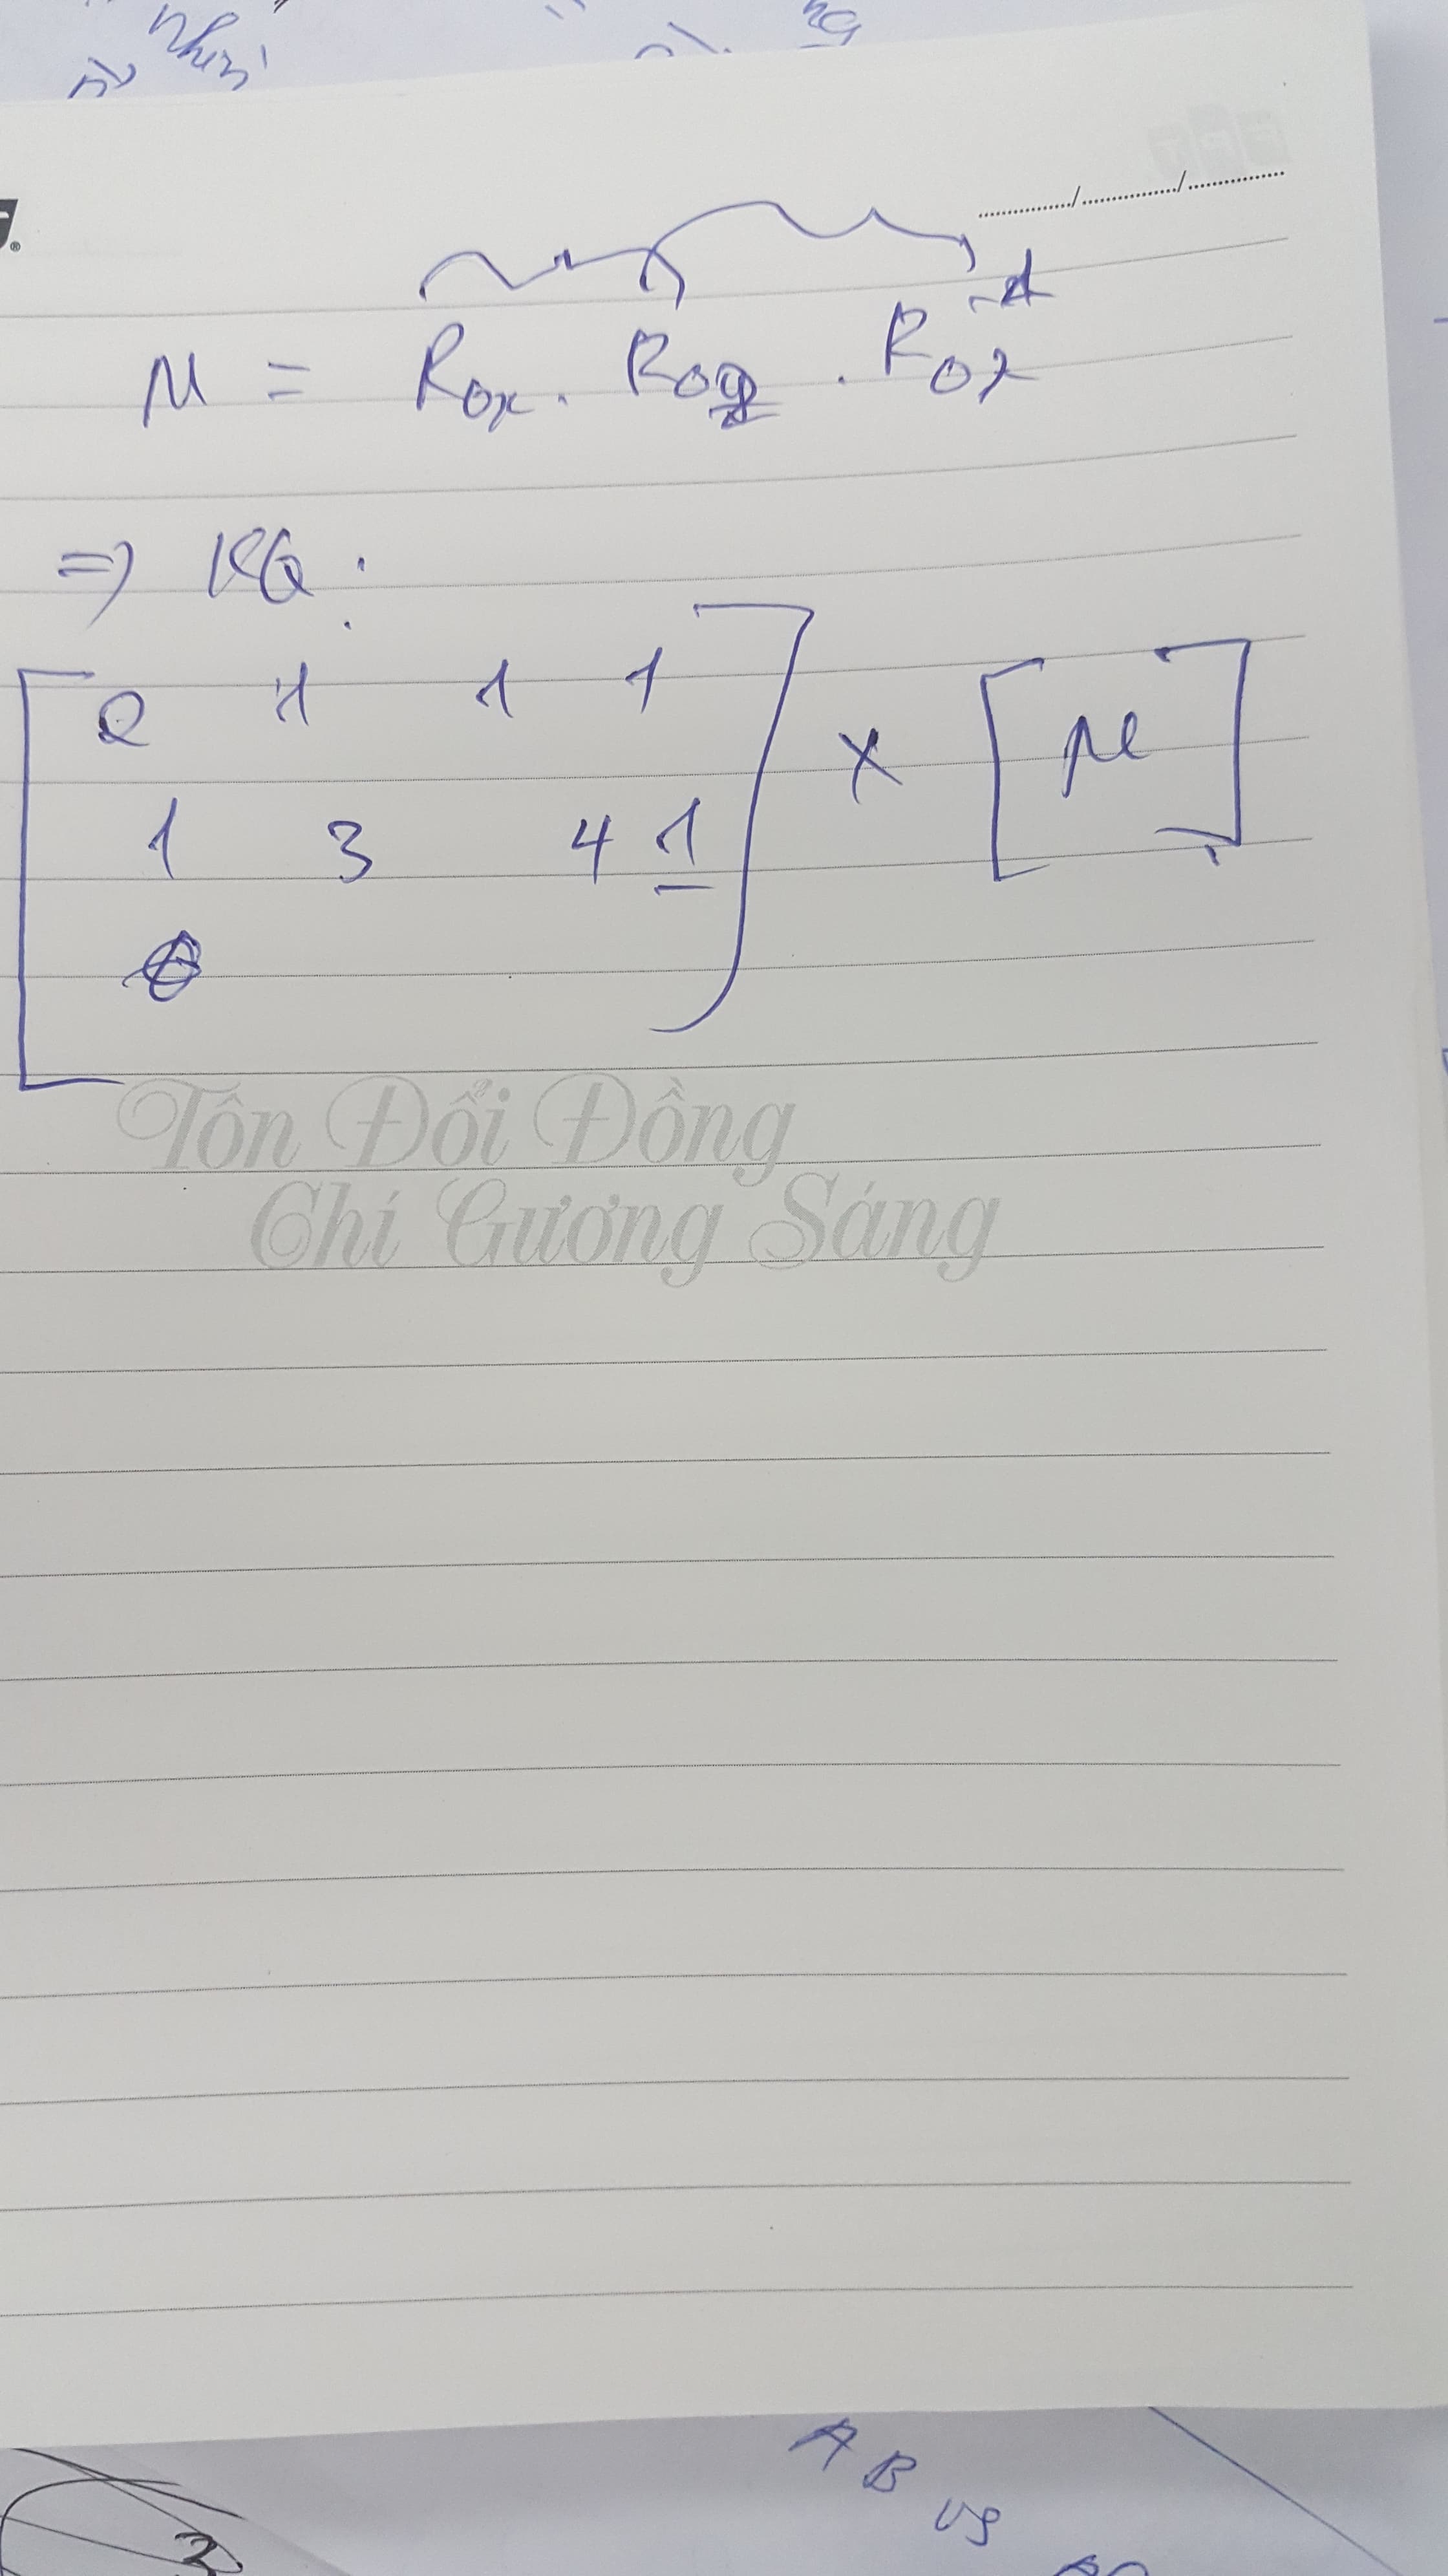 nhìn
M = Rox . Roy . Rox⁻¹
=> KQ :
2 1 1 1
1 3 4 1
x [ M ]
Tôn Đổi Đồng
Chí Gương Sáng
A B vs
3